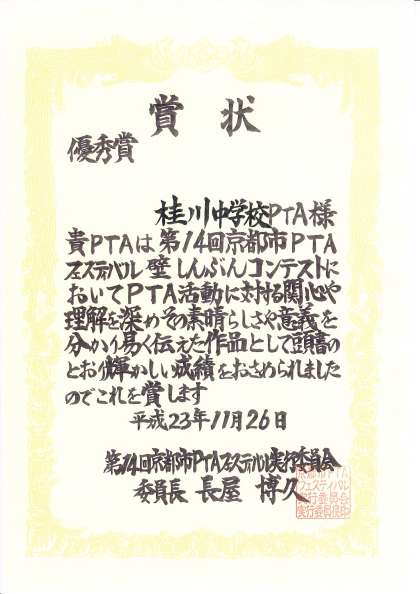 賞状
優秀賞
桂川中学校PTA様
貴PTAは第14回京都市PTA
フェスティバル壁しんぶんコンテストに
おいてPTA活動に対する関心や
理解を深めその素晴らしさや意義を
分かり易く伝えた作品として頭書の
とおり輝かしい成績をおさめられました
のでこれを賞します
平成23年11月26日
第14回京都市PTAフェスティバル実行委員会
委員長 長屋 博久
京都市PTA
フェスティバル
実行委員会
実行委員長印